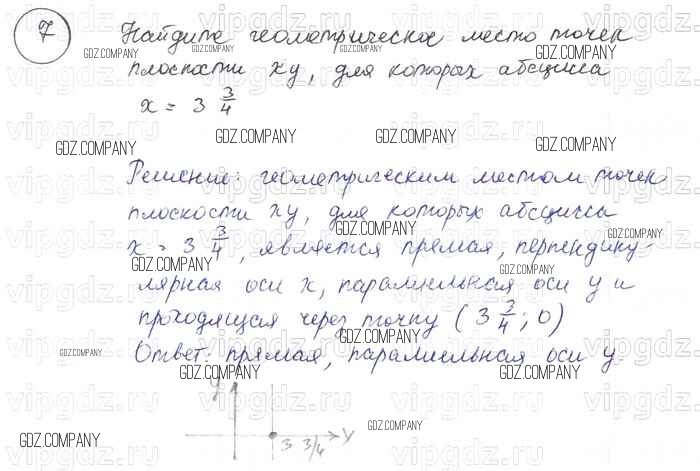 7 Найдите геометрическое место точек
плоскости xy, для которых абсцисса
x = 3 3/4
Решение: геометрическим местом точек
плоскости xy, для которых абсцисса
x = 3 3/4, является прямая, перпендику-
лярная оси x, параллельная оси y и
проходящая через точку (3 3/4; 0)
Ответ: прямая, параллельная оси y.
y
3 3/4 x
GDZ.COMPANY
vipgdz.ru